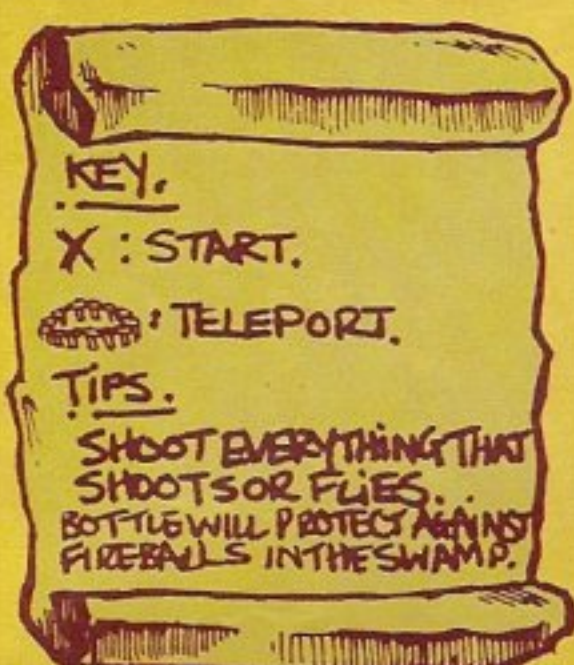 KEY.
X : START.
: TELEPORT.
TIPS.
SHOOT EVERYTHING THAT
SHOOTS OR FLIES...
BOTTLE WILL PROTECT AGAINST
FIREBALLS IN THE SWAMP.